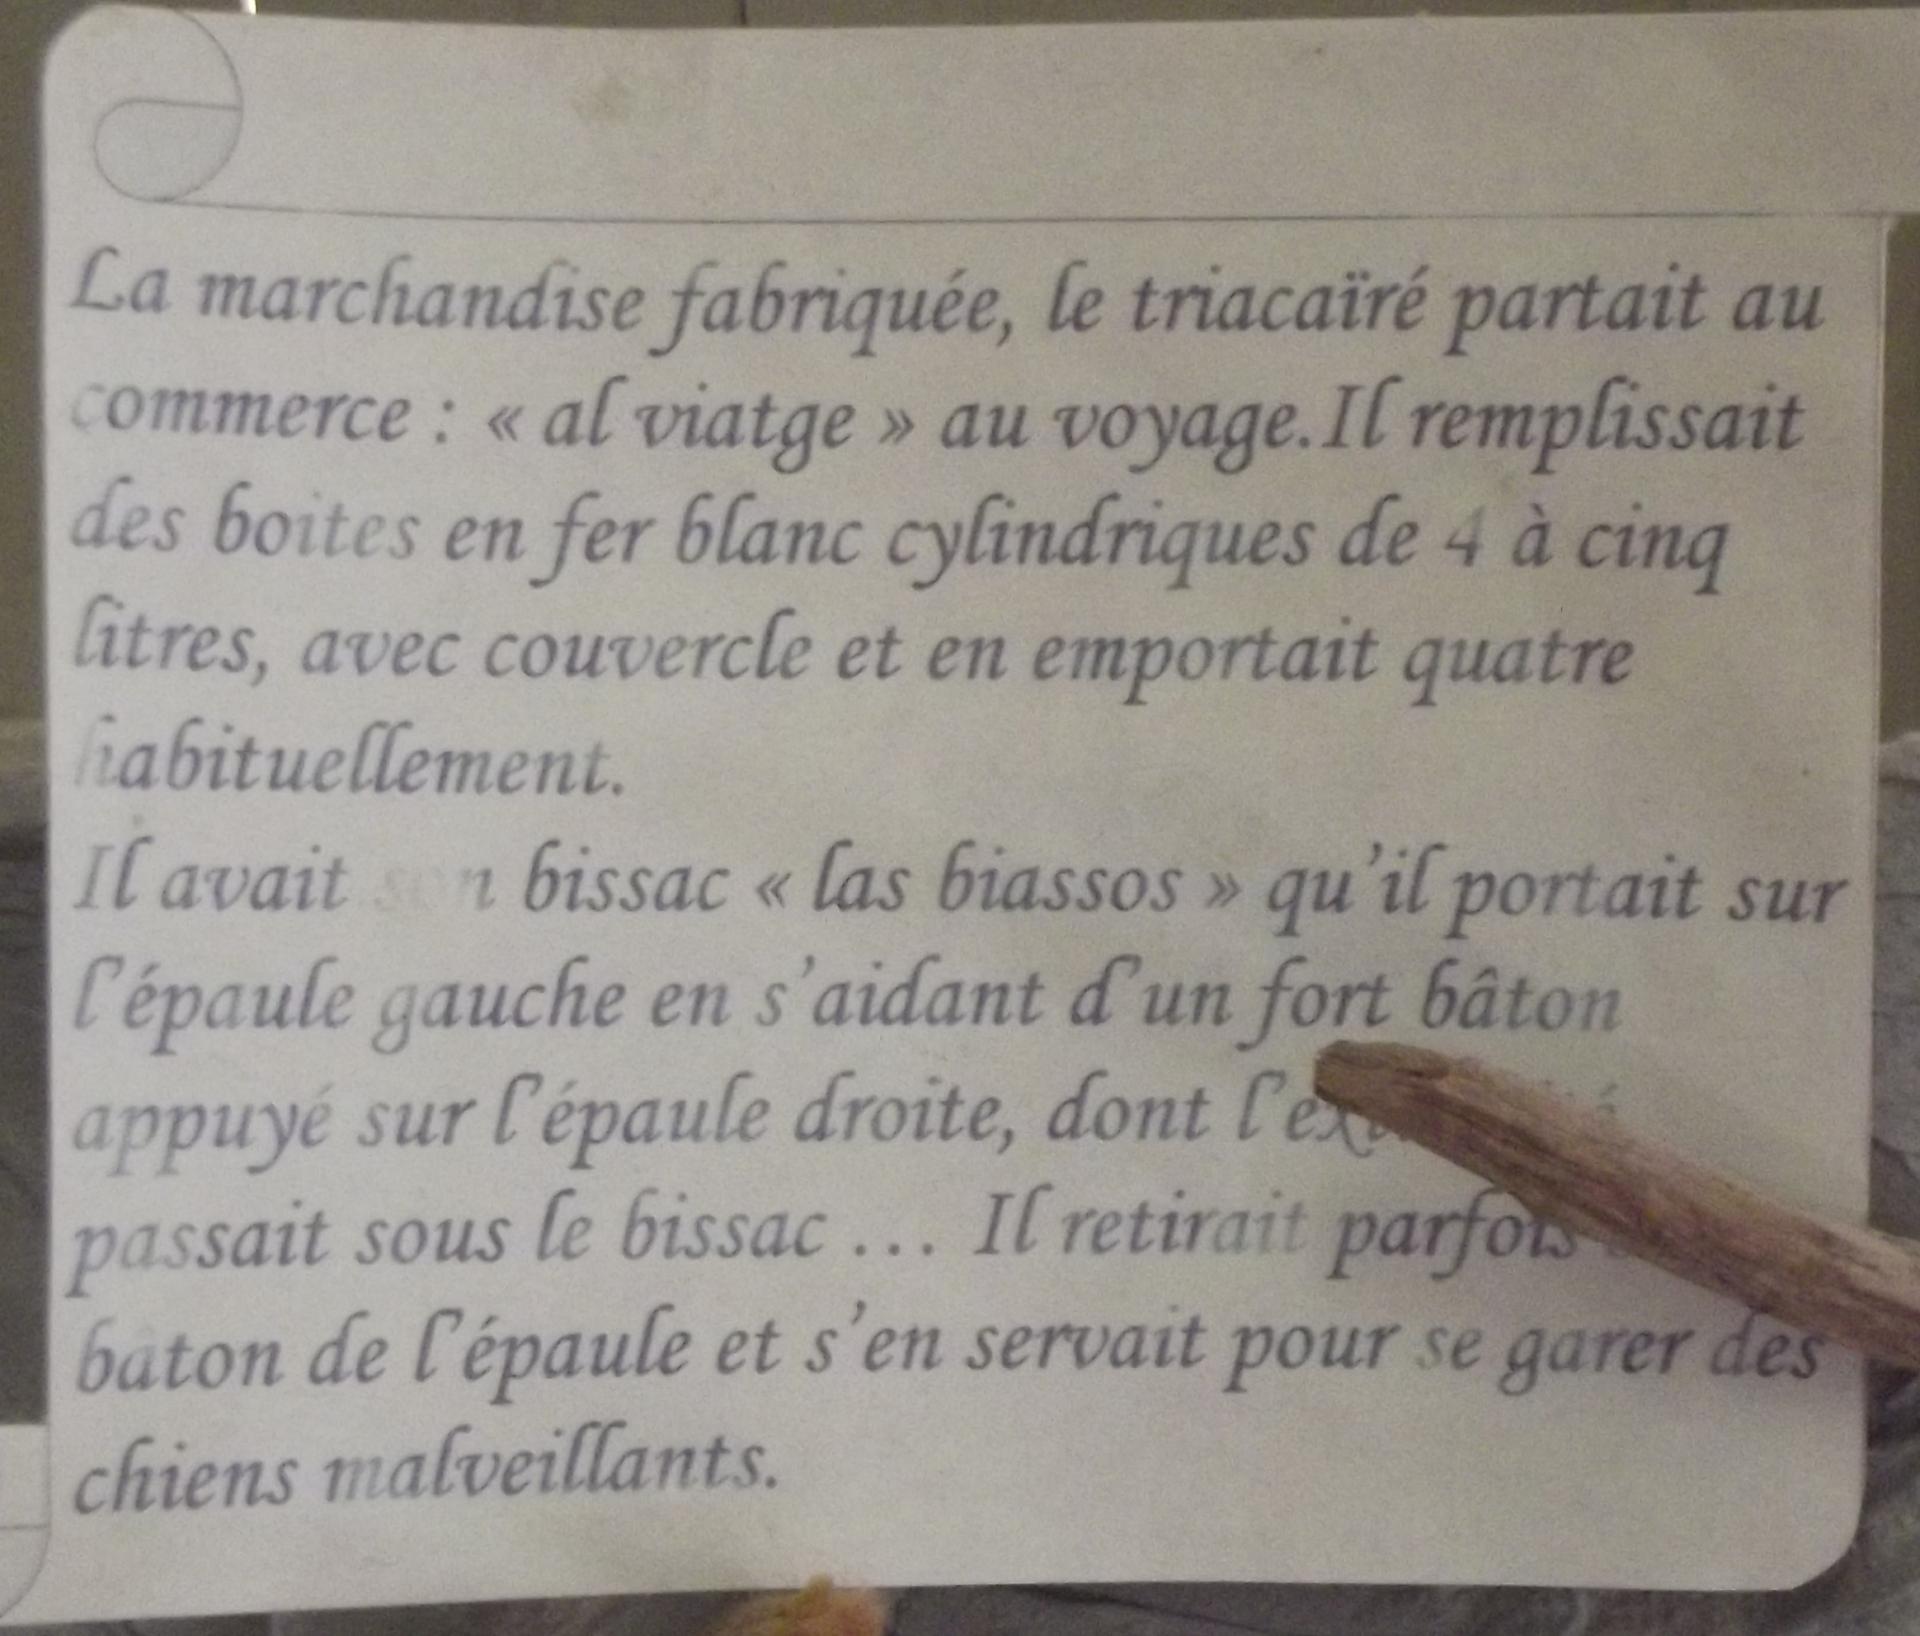 La marchandise fabriquée, le triacaïré partait au
commerce : « al viatge » au voyage.Il remplissait
des boites en fer blanc cylindriques de 4 à cinq
litres, avec couvercle et en emportait quatre
habituellement.
Il avait son bissac « las biassos » qu'il portait sur
l'épaule gauche en s'aidant d'un fort bâton
appuyé sur l'épaule droite, dont
passait sous le bissac ... Il retirait parfois
baton de l'épaule et s'en servait pour se garer des
chiens malveillants.